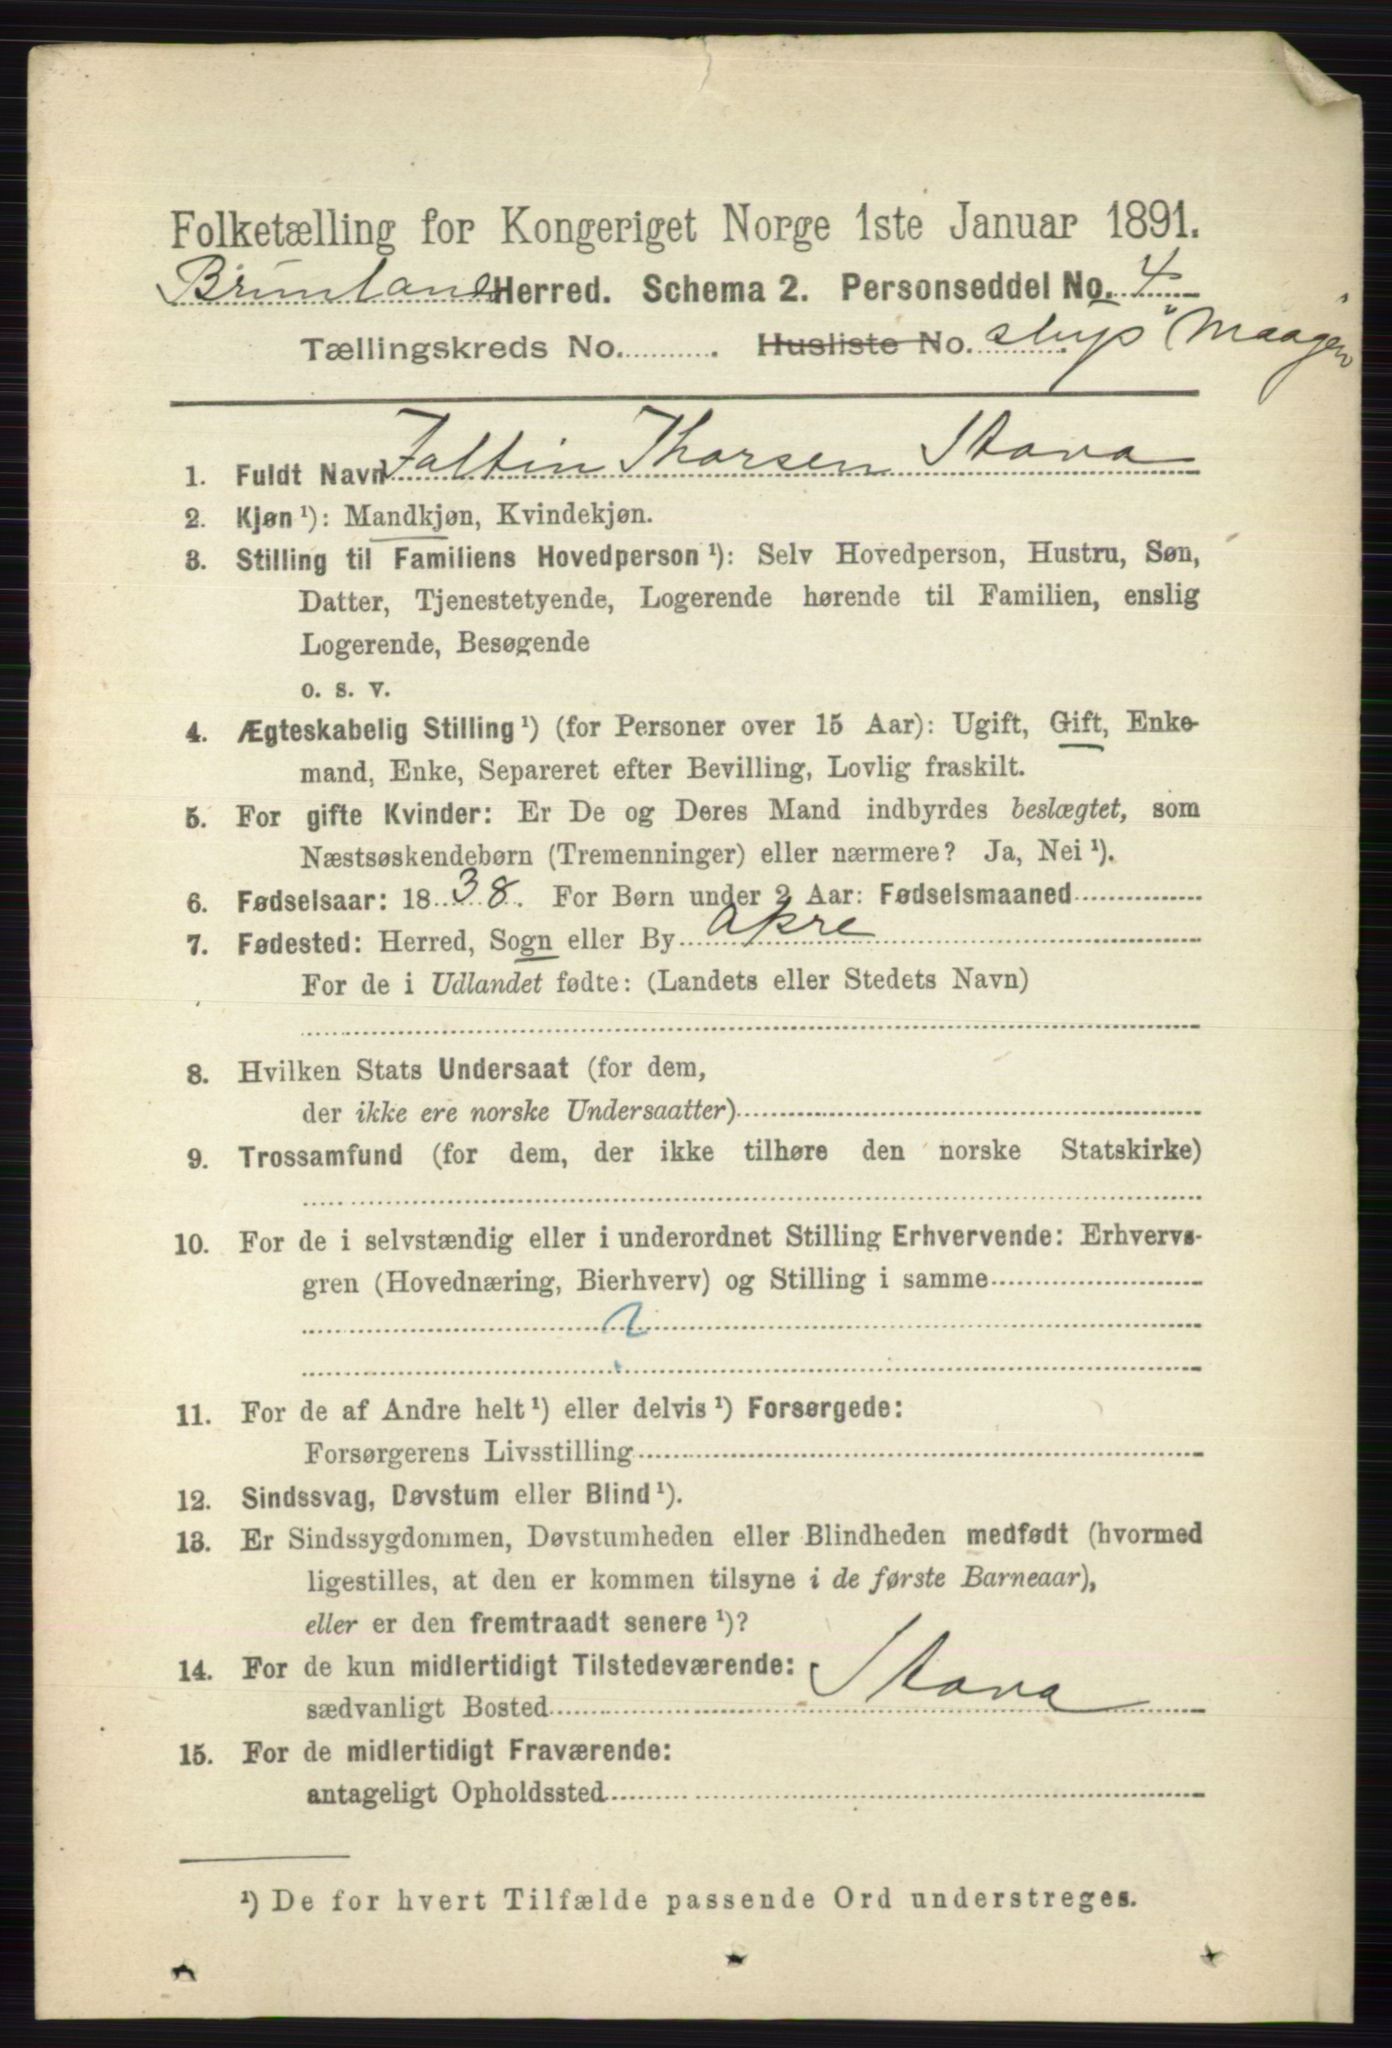 Folketælling for Kongeriget Norge 1ste Januar 1891.
Brunlanes Herred. Schema 2. Personseddel No. 4
Tællingskreds No. Husliste No. slup "Maagen"
1. Fuldt Navn Faltin Thorsen Stava
2. Kjøn ¹): Mandkjøn, Kvindekjøn.
3. Stilling til Familiens Hovedperson ¹): Selv Hovedperson, Hustru, Søn,
Datter, Tjenestetyende, Logerende hørende til Familien, enslig
Logerende, Besøgende
o. s. v.
4. Ægteskabelig Stilling ¹) (for Personer over 15 Aar): Ugift, Gift, Enke-
mand, Enke, Separeret efter Bevilling, Lovlig fraskilt.
5. For gifte Kvinder: Er De og Deres Mand indbyrdes beslægtet, som
Næstsøskendebørn (Tremenninger) eller nærmere? Ja, Nei ¹).
6. Fødselsaar: 1838. For Børn under 2 Aar: Fødselsmaaned
7. Fødested: Herred, Sogn eller By Akre
For de i Udlandet fødte: (Landets eller Stedets Navn)
8. Hvilken Stats Undersaat (for dem,
der ikke ere norske Undersaatter)
9. Trossamfund (for dem, der ikke tilhøre den norske Statskirke)
10. For de i selvstændig eller i underordnet Stilling Erhvervende: Erhvervs-
gren (Hovednæring, Bierhverv) og Stilling i samme
?
11. For de af Andre helt ¹) eller delvis ¹) Forsørgede:
Forsørgerens Livsstilling
12. Sindssvag, Døvstum eller Blind ¹).
13. Er Sindssygdommen, Døvstumheden eller Blindheden medfødt (hvormed
ligestilles, at den er kommen tilsyne i de første Barneaar),
eller er den fremtraadt senere ¹)?
14. For de kun midlertidigt Tilstedeværende:
sædvanligt Bosted Stava
15. For de midlertidigt Fraværende:
antageligt Opholdssted
¹) De for hvert Tilfælde passende Ord understreges.